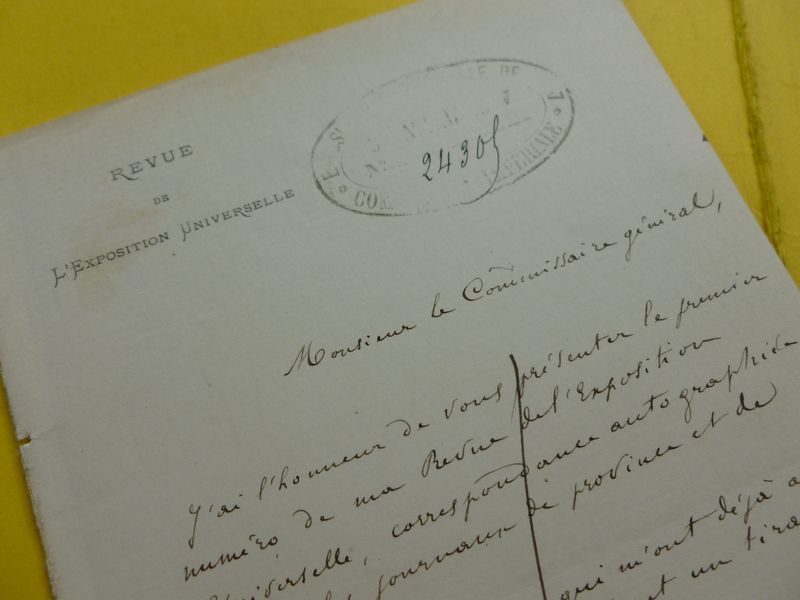 REVUE
DE
L'EXPOSITION UNIVERSELLE
24305
IMPERIALE
Monsieur le Commissaire général,
J'ai l'honneur de vous présenter le premier
numéro de ma Revue de l'Exposition
Universelle, correspondance autographiée
journaux de province et de
qui m'ont déjà a
un tira